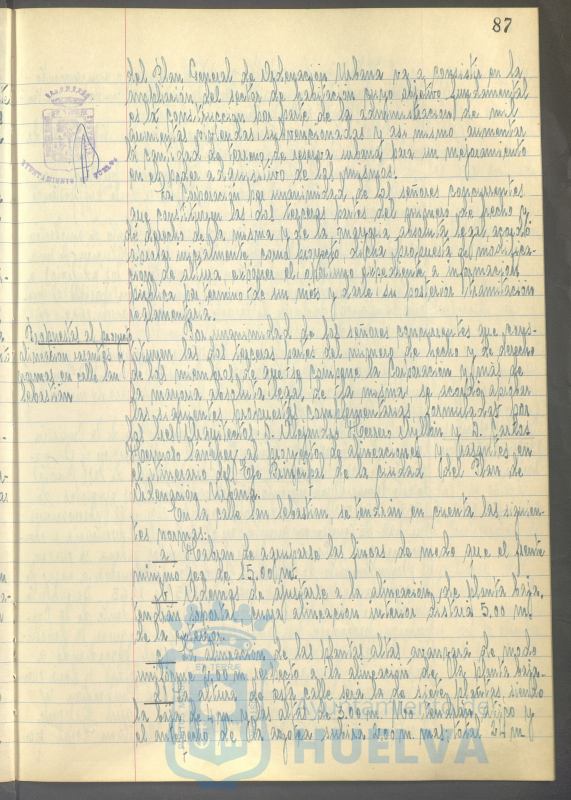 87
del Plan General de Ordenación Urbana va a consistir en la
ampliación del sector de habitación cuyo objetivo fundamental
es la construcción por parte de la administración de mil
quinientas viviendas subvencionadas y asi mismo aumentar
la cantidad de terreno de reserva urbana para un mejoramiento
en el poder adquisitivo de los mismos.
La Corporación por unanimidad de los señores concurrentes
que constituyen las dos terceras partes del número de hecho y
de derecho de la misma y de la mayoría absoluta legal, acordó
aprobar inicialmente como proyecto dicha propuesta de modifica-
cion de altura exponer el oportuno expediente a información
pública por termino de un mes y darle su posterior tramitación
reglamentaria.
Propuestas al proyecto
alineacion rasantes y
en calle San
Sebastián
Por unanimidad de los señores concurrentes que cons-
tituyen las dos terceras partes del número de hecho y de derecho
de los miembros de que se compone la Corporación y más de
la mayoría absoluta legal, de la misma, se acordó aprobar
las siguientes propuestas complementarias, formuladas por
los Sres Arquitectos D. Alejandro Herrero Ayllón y D. Carlos
Hermoso Sanchez al proyecto de alineaciones y rasantes en
el itinerario del Eje Principal de la ciudad (del Plan de
Ordenación Urbana.
En la calle San Sebastián, se tendrán en cuenta las siguien-
tes normas:
a. Habrán de agruparse las fincas de modo que el frente
mínimo sea de 15.00 m.
b. Además de ajustarse a la alineación de planta baja,
tendrán soportal cuya alineación interior distará 5.00 m
de la exterior.
c. alineación de las plantas altas avanzará de modo
uniforme 1.00 m respecto a la alineación de la planta baja.
d. La altura de esta calle será la de siete plantas siendo
la baja de y las altas de 3.00 m. No tendrán ático y
el antepecho de la azotea subira 1.00 m mas. Total 24 m
AYUNTAMIENTO HUELVA
Ayuntamiento de
HUELVA